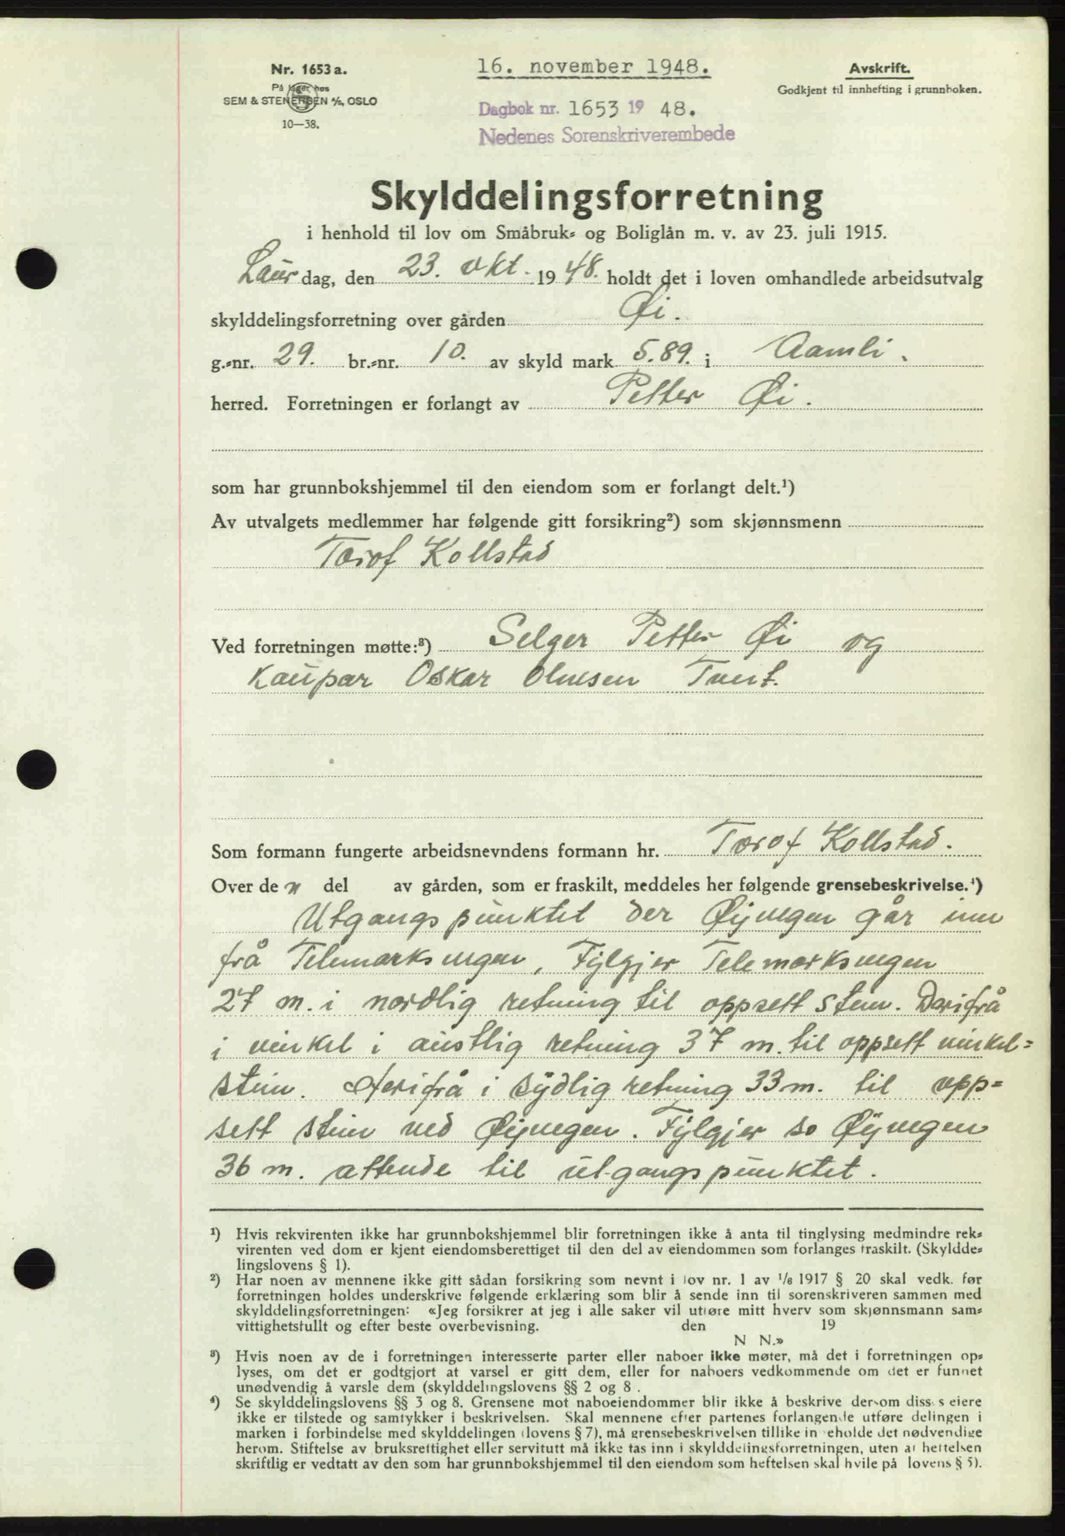 Nr. 1653 a.
På lager hos
SEM & STENERSEN A/S, OSLO
10—38.
16. november 1948.
Dagbok nr. 1653 19 48.
Nedenes Sorenskriverembede
Avskrift.
Godkjent til innhefting i grunnboken.
Skylddelingsforretning
i henhold til lov om Småbruk- og Boliglån m. v. av 23. juli 1915.
Laur dag, den 23. okt. 19 48. holdt det i loven omhandlede arbeidsutvalg
skylddelingsforretning over gården Øi.
g.-nr. 29. br.-nr. 10. av skyld mark 5.89. i Aamli.
herred. Forretningen er forlangt av Petter Øi.
som har grunnbokshjemmel til den eiendom som er forlangt delt.¹)
Av utvalgets medlemmer har følgende gitt forsikring²) som skjønnsmenn
Torof Kollstad
Ved forretningen møtte:³) Selger Petter Øi og
Kaspar Oskar Olnesen Tveit.
Som formann fungerte arbeidsnevndens formann hr. Torof Kollstad.
Over de n del av gården, som er fraskilt, meddeles her følgende grensebeskrivelse.⁴)
Utgangspunktet der Øyvegen går inn
frå Telemarksvegen, Fylgjer Telemarksvegen
27 m. i nordlig retning til oppsett stein. Derifrå
i vinkel i austlig retning 37 m. til oppsett vinkel=
stein. Derifrå i sydlig retning 33 m. til opp=
sett stein ved Øyvegen. Fylgjer so Øyvegen
36 m. attende til utgangspunktet.
¹) Hvis rekvirenten ikke har grunnbokshjemmel blir forretningen ikke å anta til tinglysing medmindre rek-
virenten ved dom er kjent eiendomsberettiget til den del av eiendommen som forlanges fraskilt. (Skyldde-
lingslovens § 1).
²) Har noen av mennene ikke gitt sådan forsikring som nevnt i lov nr. 1 av 1/6 1917 § 20 skal vedk. før
forretningen holdes underskrive følgende erklæring som blir å sende inn til sorenskriveren sammen med
skylddelingsforretningen: «Jeg forsikrer at jeg i alle saker vil utføre mitt hverv som skjønnsmann sam-
vittighetsfullt og efter beste overbevisning. den 19
N N.»
³) Hvis noen av de i forretningen interesserte parter eller naboer ikke møter, må det i forretningen op-
lyses, om det er godtgjort at varsel er gitt dem, eller for naboers vedkommende om det er funnet
unødvendig å varsle dem (skylddelingslovens §§ 2 og 8 .
⁴) Se skylddelingslovens §§ 3 og 8. Grensene mot naboeiendommer blir ikke å beskrive dersom disses eiere
ikke er tilstede og samtykker i beskrivelsen. Skal mennene efter partenes forlangende utføre delingen i
marken i forbindelse med skylddelingen (lovens § 7), må grensebeskrivelsen tillike inneholde det nødvendige
herom. Stiftelse av bruksrettighet eller servitutt må ikke tas inn i skylddelingsforretningen, uten at heftelsen
skriftlig er vedtatt av den som har grunnbokshjemmel til den eiendom som heftelsen skal hvile på lovens § 5).